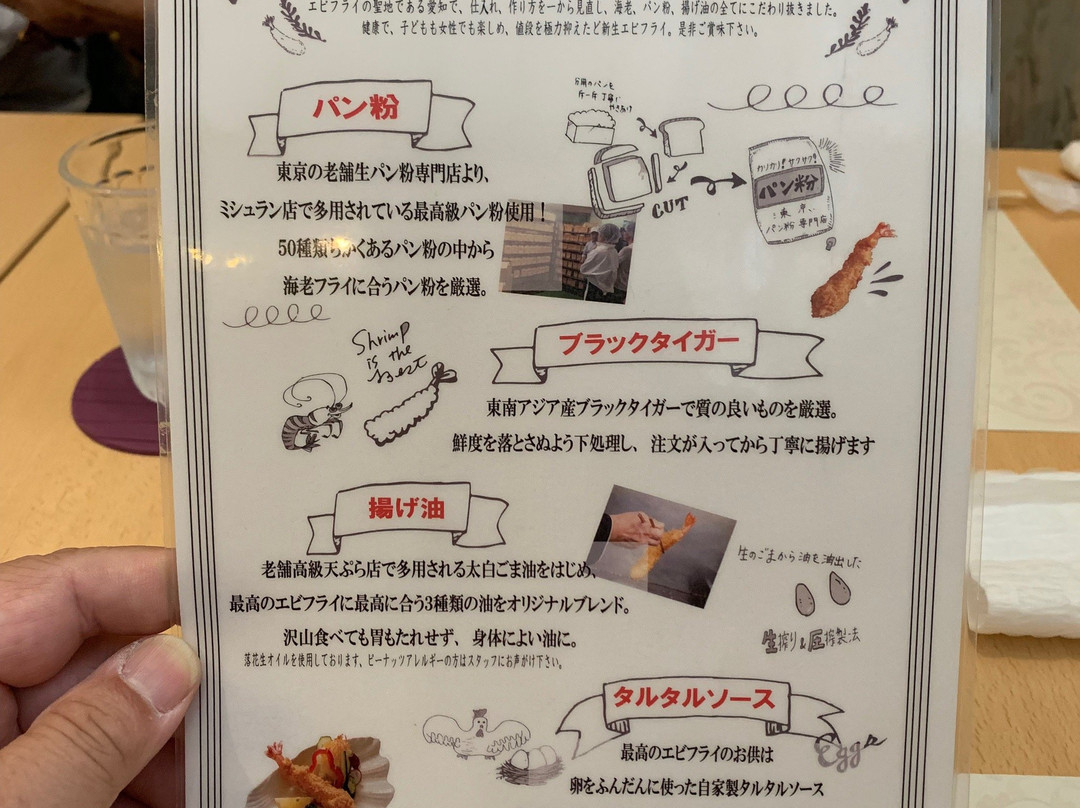 エビフライの聖地である愛知で、仕入れ、作り方を一から見直し、海老、パン粉、揚げ油の全てにこだわり抜きました。
健康で、子どもも女性でも楽しめ、値段を極力抑えたど新生エビフライ。是非ご賞味下さい。
パン粉
東京の老舗生パン粉専門店より、
ミシュラン店で多用されている最高級パン粉使用！
50種類ちかくあるパン粉の中から
海老フライに合うパン粉を厳選。
専用のパンを
一斤一斤丁寧に
CUT
カリカリ！サクサク！
パン粉
東京
パン粉専門店
Shrimp
is the
Best
ブラックタイガー
東南アジア産ブラックタイガーで質の良いものを厳選。
鮮度を落とさぬよう下処理し、注文が入ってから丁寧に揚げます
揚げ油
老舗高級天ぷら店で多用される太白ごま油をはじめ、
最高のエビフライに最高に合う3種類の油をオリジナルブレンド。
沢山食べても胃もたれせず、身体によい油に。
落花生オイルを使用しております、ピーナッツアレルギーの方はスタッフにお声がけ下さい。
生のごまから油を油出した
生搾り&圧搾製法
タルタルソース
最高のエビフライのお供は
卵をふんだんに使った自家製タルタルソース
Egg